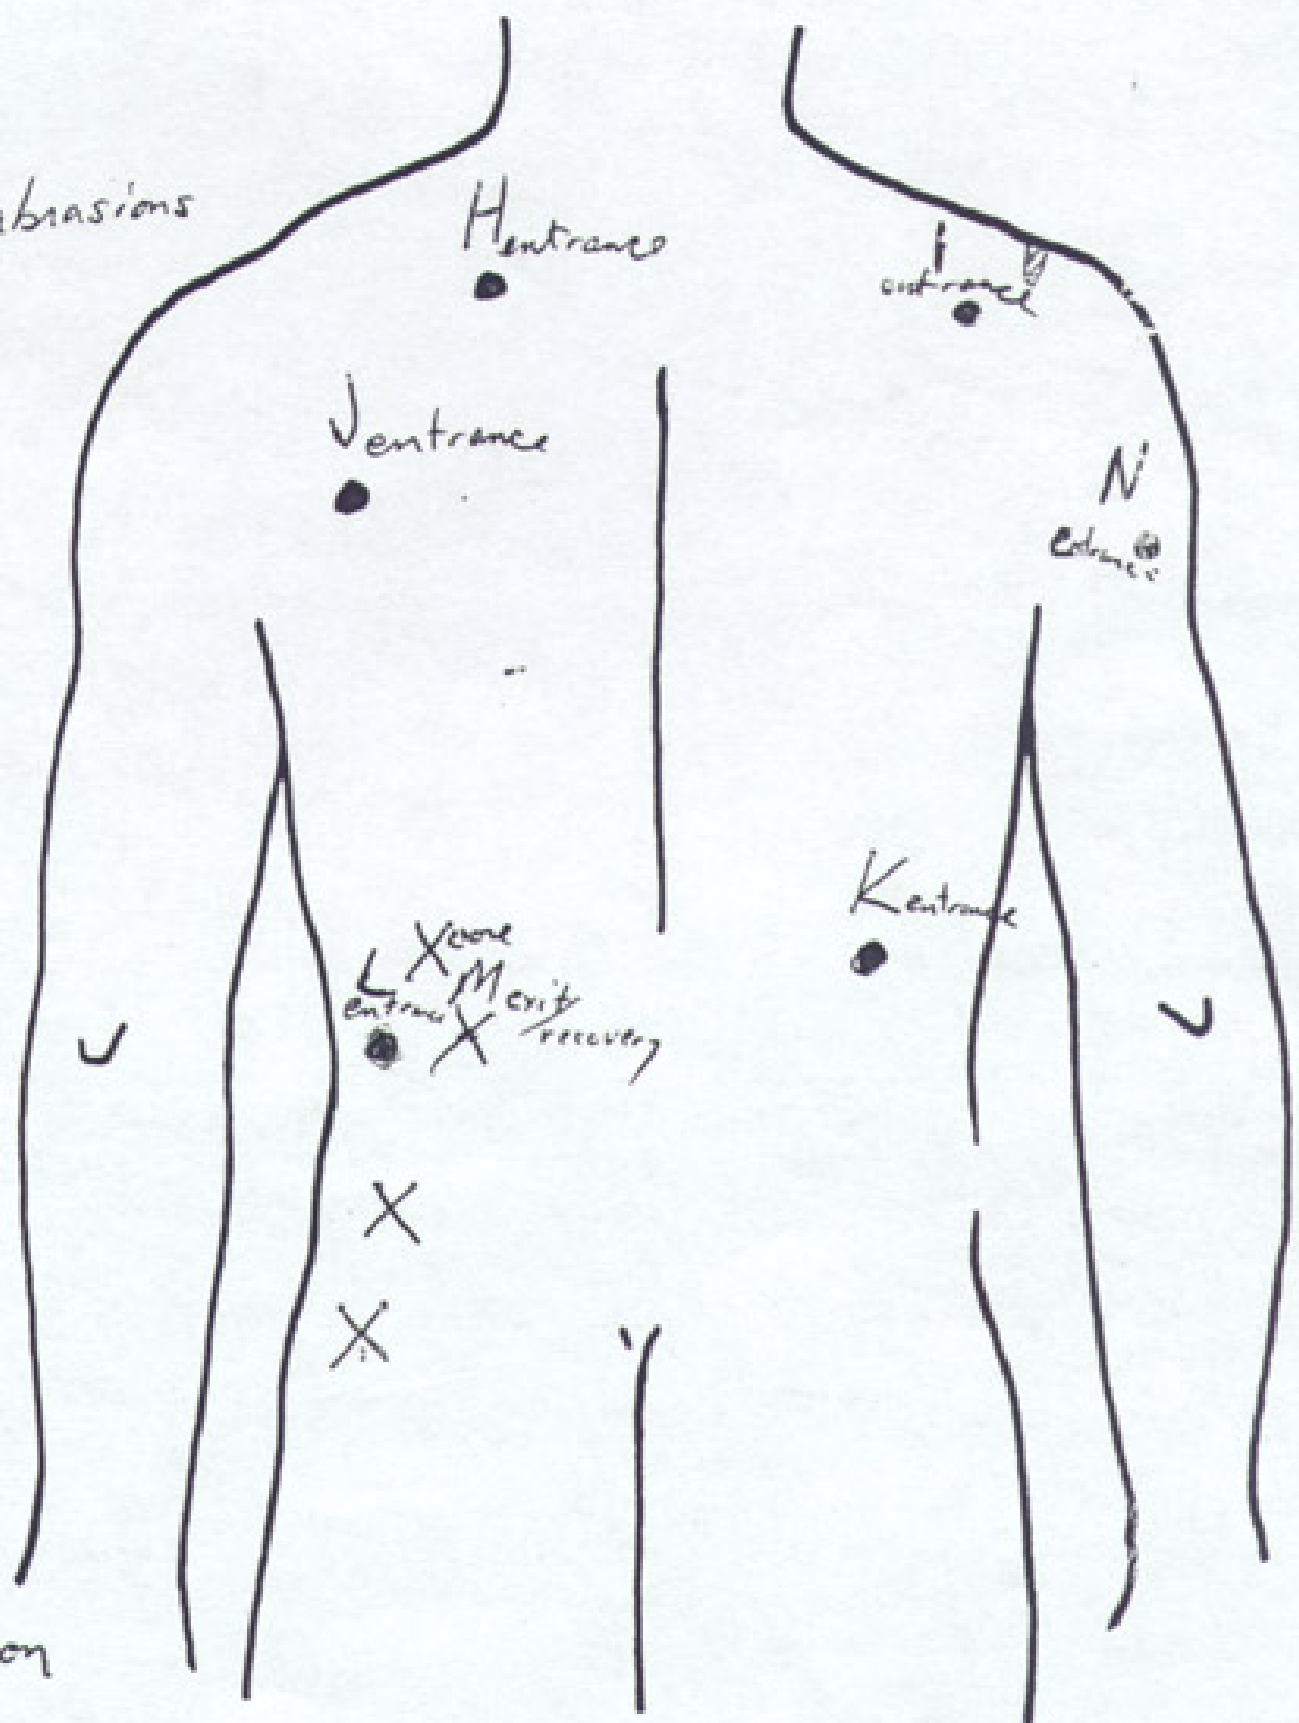 abrasions
H entrance
I
entrance
J entrance
N
entrance
K entrance
X core
L
entrance
M exit/
X recovery
X
X
on